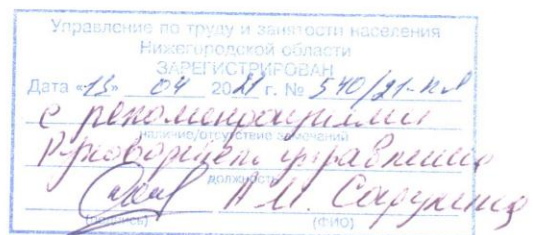 Управление по труду и занятости населения
Нижегородской области
ЗАРЕГИСТРИРОВАН
Дата «13» 04 2021 г. № 540/21-
с рекомендациями
наличие/отсутствие замечаний
Руководитель управления
должность
А.М.
(подпись) (ФИО)